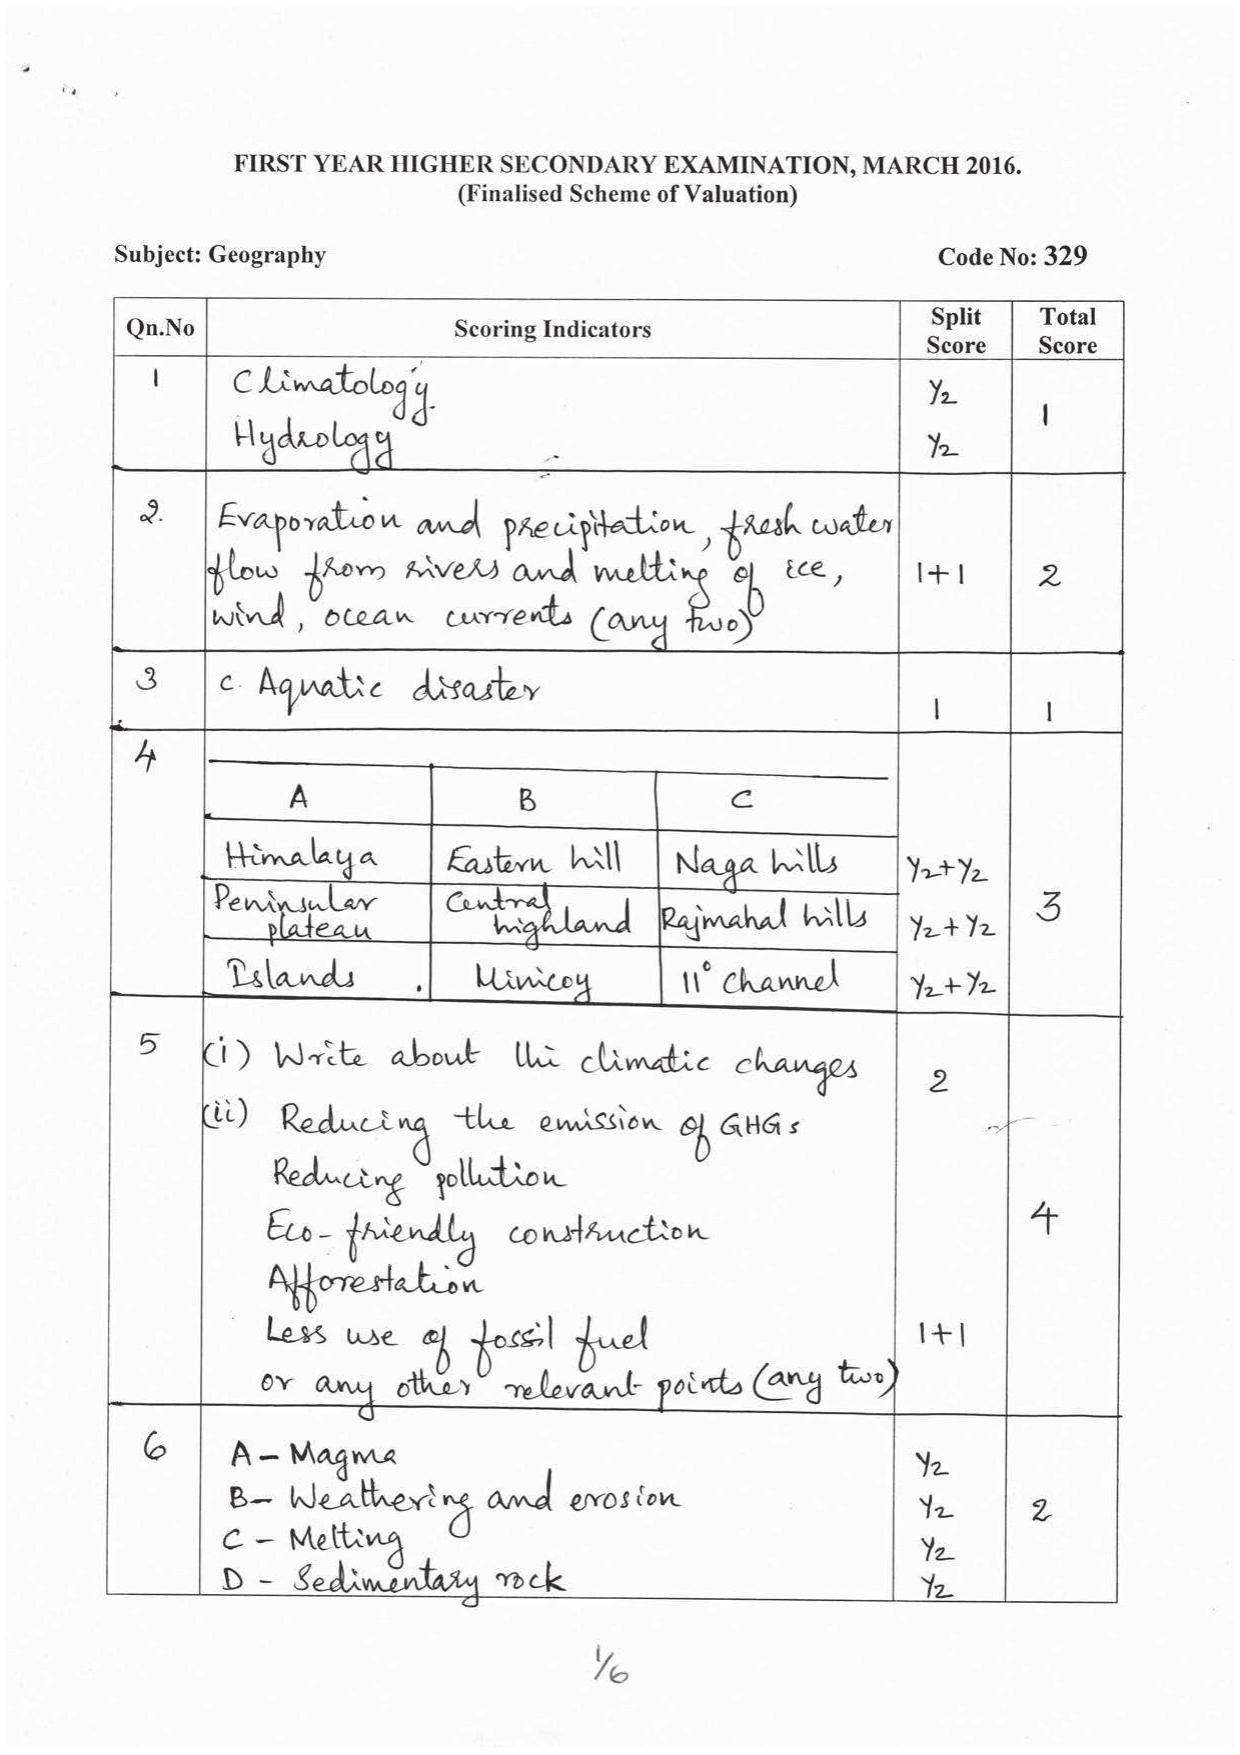 FIRST YEAR HIGHER SECONDARY EXAMINATION, MARCH 2016.
(Finalised Scheme of Valuation)
Subject: Geography Code No: 329
Qn.No Scoring Indicators Split Score Total Score
1 Climatology. ½
Hydrology ½ 1
2. Evaporation and precipitation, fresh water
flow from rivers and melting of ice, 1+1 2
wind, ocean currents (any two)
3 c. Aquatic disaster 1 1
4
A B C
Himalaya Eastern hill Naga hills ½+½
Peninsular plateau Central highland Rajmahal hills ½+½ 3
Islands . Minicoy 11° Channel ½+½
5 (i) Write about the climatic changes 2
(ii) Reducing the emission of GHGs
Reducing pollution
Eco-friendly construction 4
Afforestation
Less use of fossil fuel 1+1
or any other relevant points (any two)
6 A – Magma ½
B – Weathering and erosion ½ 2
C – Melting ½
D – Sedimentary rock ½
1/6